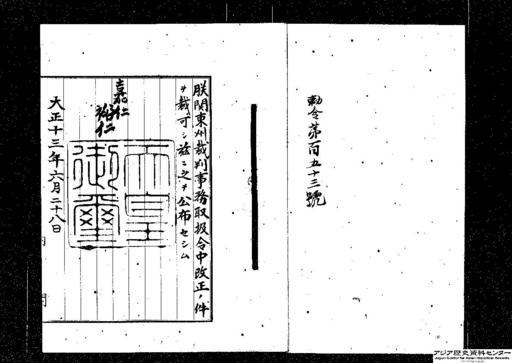 勅令第百五十三號
朕関東州裁判事務取扱令中改正ノ件
ヲ裁可シ茲ニ之ヲ公布セシム
嘉仁
裕仁
天皇御璽
大正十三年六月二十八日
アジア歴史資料センター
Japan Center for Asian Historical Records